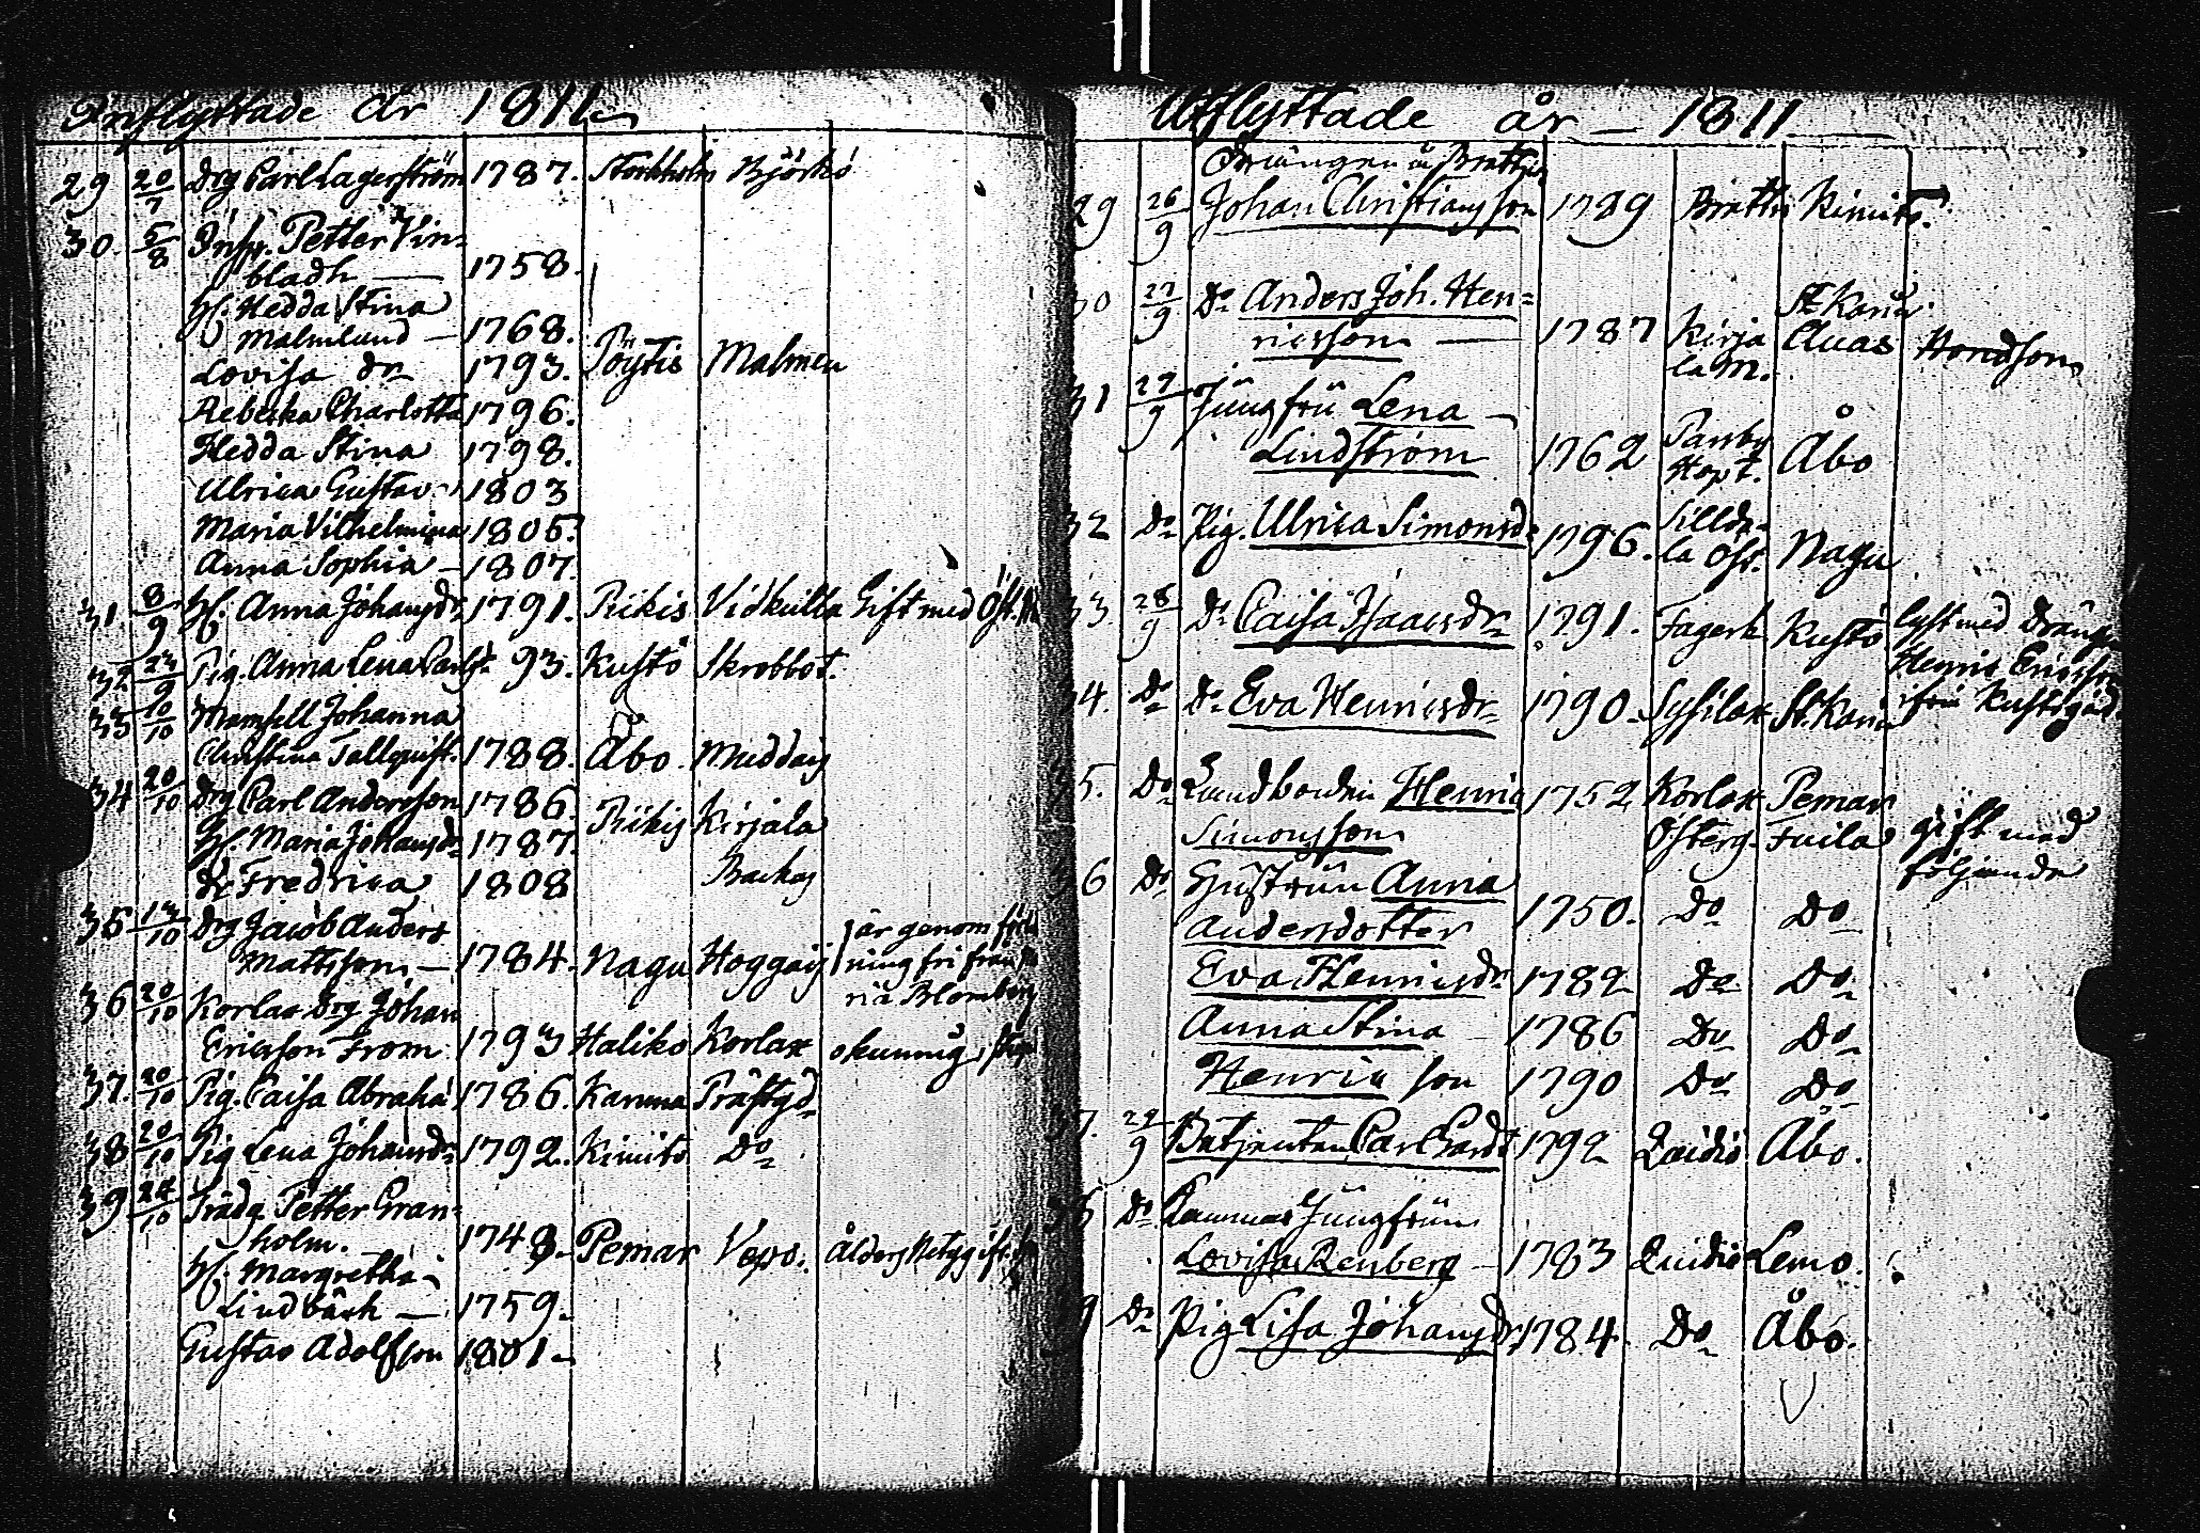 Inflyttade år 1811
29 20/7 Drg Carl Lagerström 1787. Stockholm Björkö
30. 5/8 Insp. Petter Vin=
bladh — 1758.
H. Hedda Stina
Malmlund — 1768.
Lovisa dr 1793. Pöytis Malmen
Rebecka Charlotta 1796.
Hedda Stina 1798.
Ulrica Gustav. 1803
Maria Vilhelmina 1805.
Anna Sophia — 1807.
31. 8/9 H. Anna Johansdr 1791. Piikis Vidkulla Gift med
32 23/9 Pig. Anna Lena Carlsd. 93. Kustö Skrobbot.
33 10/10 Mamsell Johanna
Christina Tallquist. 1788. Åbo. Muddais
34 20/10 Drg Carl Andersson 1786.
H. Maria Johansdr 1787. Piikis Kirjala
dr Fredrica 1808 Backas
35 13/10 Drg Jacob Anders
Mattsson — 1784. Nagu Hoggais är genom
ning fri från
ria Blomberg
36 20/10 Korlax Drg Johan
Ericsson From 1793 Haliko Korlax okunnig
37. 20/10 Pig. Caisa Abraha 1786. Karuna Prästgd
38 20/10 Pig Lena Johansdr 1792. Kimito Do
39 24/10 Trädg. Petter Gran=
holm. 1748. Pemar Ålders
H. Margretha
Lindbäck — 1759.
Gustav Adolfsson 1801.
Utflyttade år — 1811
Drängen
29 26/9 Johan Christiansson 1789 Kimito
30 27/9 Do Anders Joh. Hen=
ricsson — 1787 Kirja
la M. St Karins
31 27/9 Jungfru Lena
Lindström 1762 Åbo
32 Do Pig. Ulrica Simonsd. 1796. Nagu
33. 28/9 Do Caisa Isaacsdr 1791. Fagerk. Kustö lyst med Dräng
Henric Ericsson
34. Do Do Eva Henricsdr 1790. Sysilax St. Karin ifrån Kustögård
35. Do Landbonden Henric 1752 Korlax Pemar
Simonsson Österg. gift med
följande
36 Do Hustrun Anna
Andersdotter 1750. Do Do
Eva Henricsdr 1782 Do Do
Anna Stina 1786 Do Do
Henric son 1790 Do Do
37. 29/9 Betjenten Carl 1792 Qvidiö Åbo.
38 Do Cammar Jungfrun
Lovisa Renberg — 1783 Qvidiö Lemo.
39 Do Pig Lisa Johansdr 1784. Do Åbo.